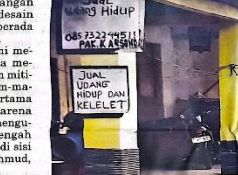 angan
desain
berada
ni me-
a me-
n miti-
m-ma-
ertama
arena
engu-
engah
di sisi
hmud,
Jual
udang Hidup
085732244511
PAK.KARSONO
JUAL
UDANG
HIDUP DAN
KELELET